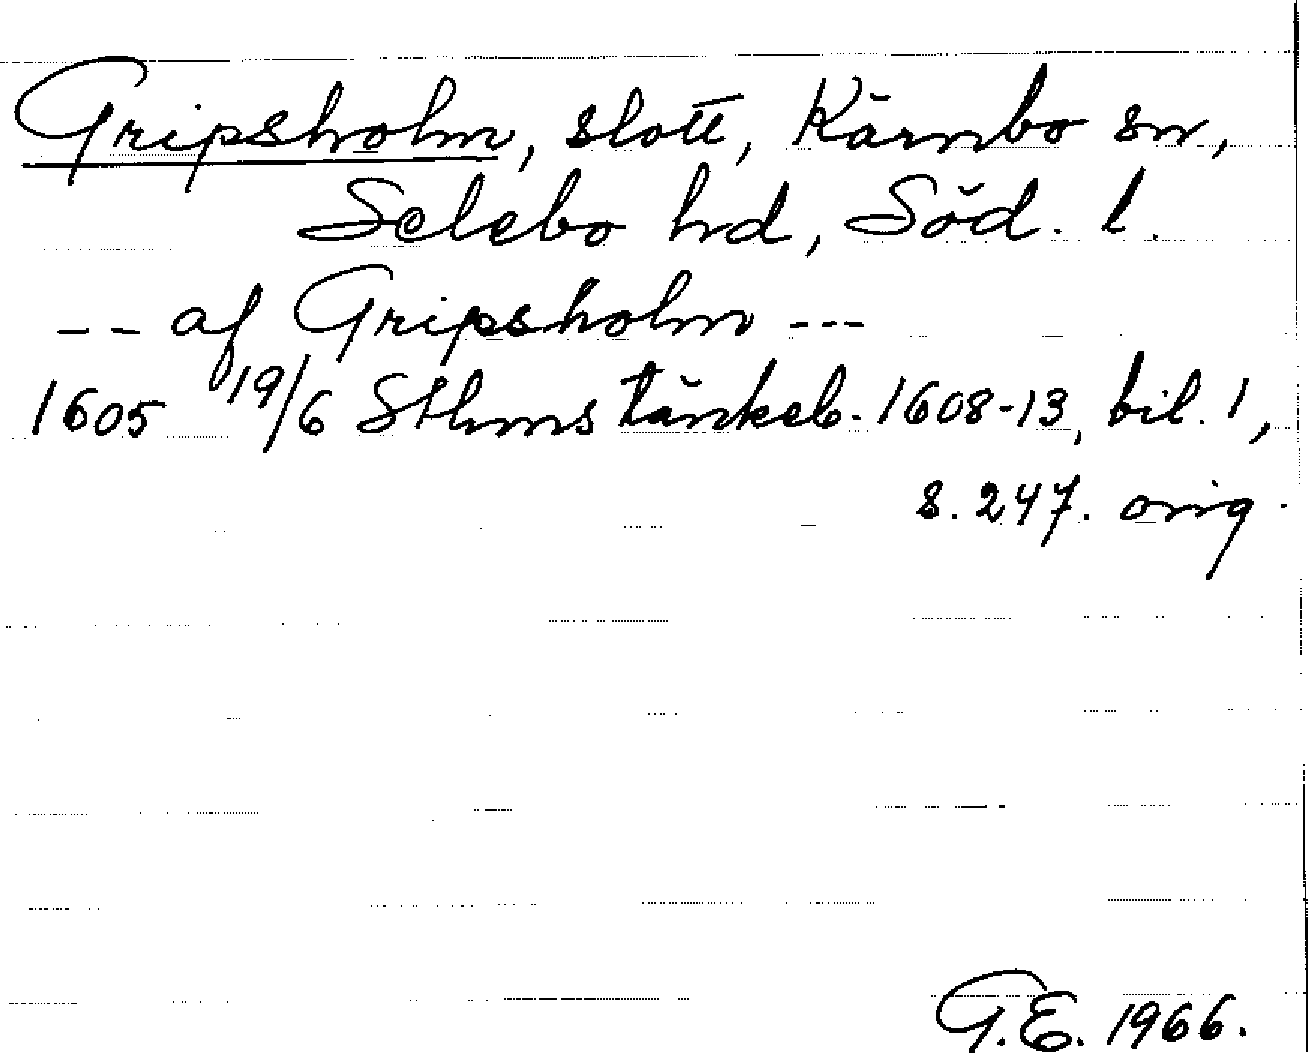 Gripsholm, slott, Kärnbo sn,
Selebo hd, Söd. l.
-- af Gripsholm ---
1605 19/6 Sthms tänkeb. 1608-13, bil. 1,
s. 247. orig.
G.E. 1966.